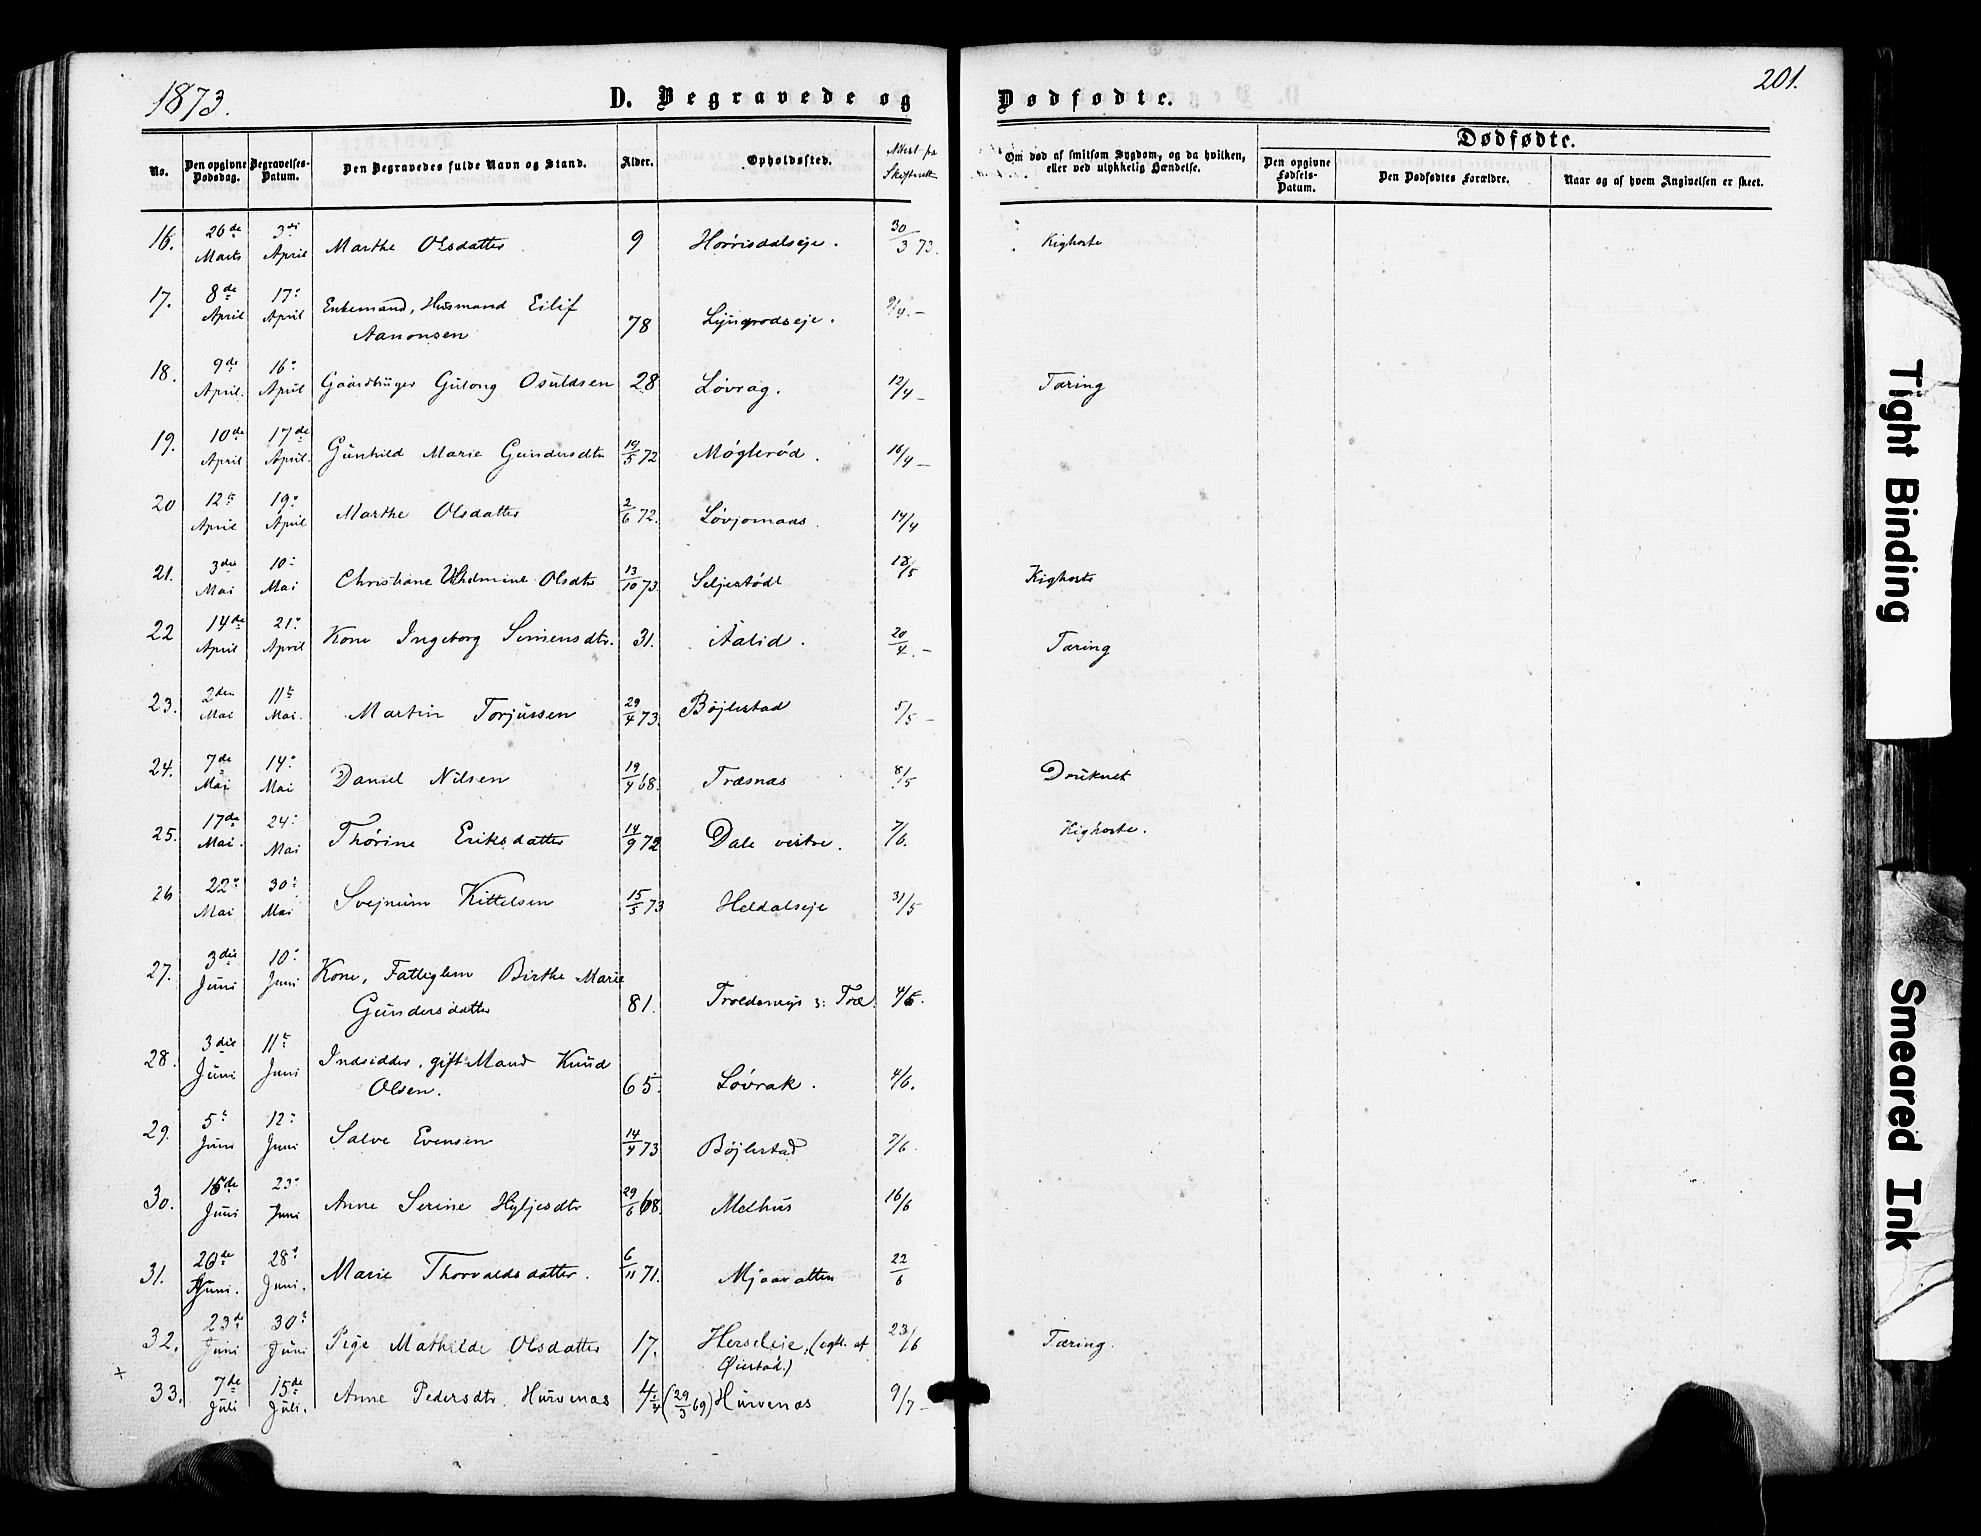 1873.
D. Begravede og Dødfødte.
201.
No. | Den opgivne Dødsdag. | Begravelses-Datum. | Den Begravedes fulde Navn og Stand. | Alder. | Opholdssted. | Attest fra Skifteretten | Om død af smitsom Sygdom, og da hvilken, eller ved ulykkelig Hændelse. | Dødfødte. Den opgivne Fødsels-Datum. | Den Dødfødtes Forældre. | Naar og af hvem Angivelsen er skeet.
16. | 26de Marts | 3die April | Marthe Olsdatter | 9 | | 30/3 73. | Kighoste
17. | 8de April | 17: April | Enkemand, Husmand Eilif Aanonsen | 78 | | 9/4.-
18. | 9de April. | 16: April | Gaardbruger Gulong Osuldsen | 28 | Løvrag. | 12/4 - | Tæring
19. | 10de April | 17de April. | Gunhild Marie Gundersdtr | 19/5 72 | Møglerød. | 16/4 -
20 | 12te April | 19: April | Marthe Olsdatter | 2/6 72. | Løvjomaas. | 14/4
21. | 3die Mai | 10: Mai | Christiane Vilhelmine Olsdtr | 13/10 73. | | 18/5 | Kighoste
22 | 14de April | 21: April | Kone Ingeborg Simensdtr. | 31. | Aalid. | 20/4.- | Tæring
23. | 2den Mai | 11te Mai. | Martin Torjussen | 29/4 73. | Bøjlestad | 5/5 -
24. | 7de Mai | 14: Mai | Daniel Nilsen | 19/4 68. | Træsnæs | 8/5 | Druknet
25. | 17de Mai. | 24: Mai | Thørine Eriksdatter | 14/9 72 | Dale vestre. | 7/6. | Kighoste.
26 | 22: Mai | 30: Mai | Svejnum Kittelsen | 15/5 73 | Heldalseje | 31/5
27. | 3die Juni | 10: Juni | Kone, Fattiglem Birthe Marie Gundersdatter | 81. | | 4/6.
28. | 3die Juni | 11te Juni | Indsidder, gift Mand Knud Olsen. | 65. | Løvrak. | 4/6.
29. | 5te Juni | 12: Juni | Salve Evensen | 14/4 73 | Bøjlestad | 7/6.
30. | 16de Juni | 23: Juni | Anne Serine Hyljesdtr | 29/6 68. | Melhus | 16/6
31. | 20de Juni. | 28: Juni. | Marie Thorvaldsdatter. | 6/11 71. | Mjaavatten | 22/6
32. | 23de Juni | 30te Juni | Pige Mathilde Olsdatter | 17. | (egtl. af Øiestad.) | 23/6 | Tæring.
+ 33. | 7de Juli | 15de Juli. | Anne Pedersdtr. Hurvenæs | 4 1/4 (29/3 69) | Hurvenæs | 9/7 -
Tight Binding
Smeared Ink